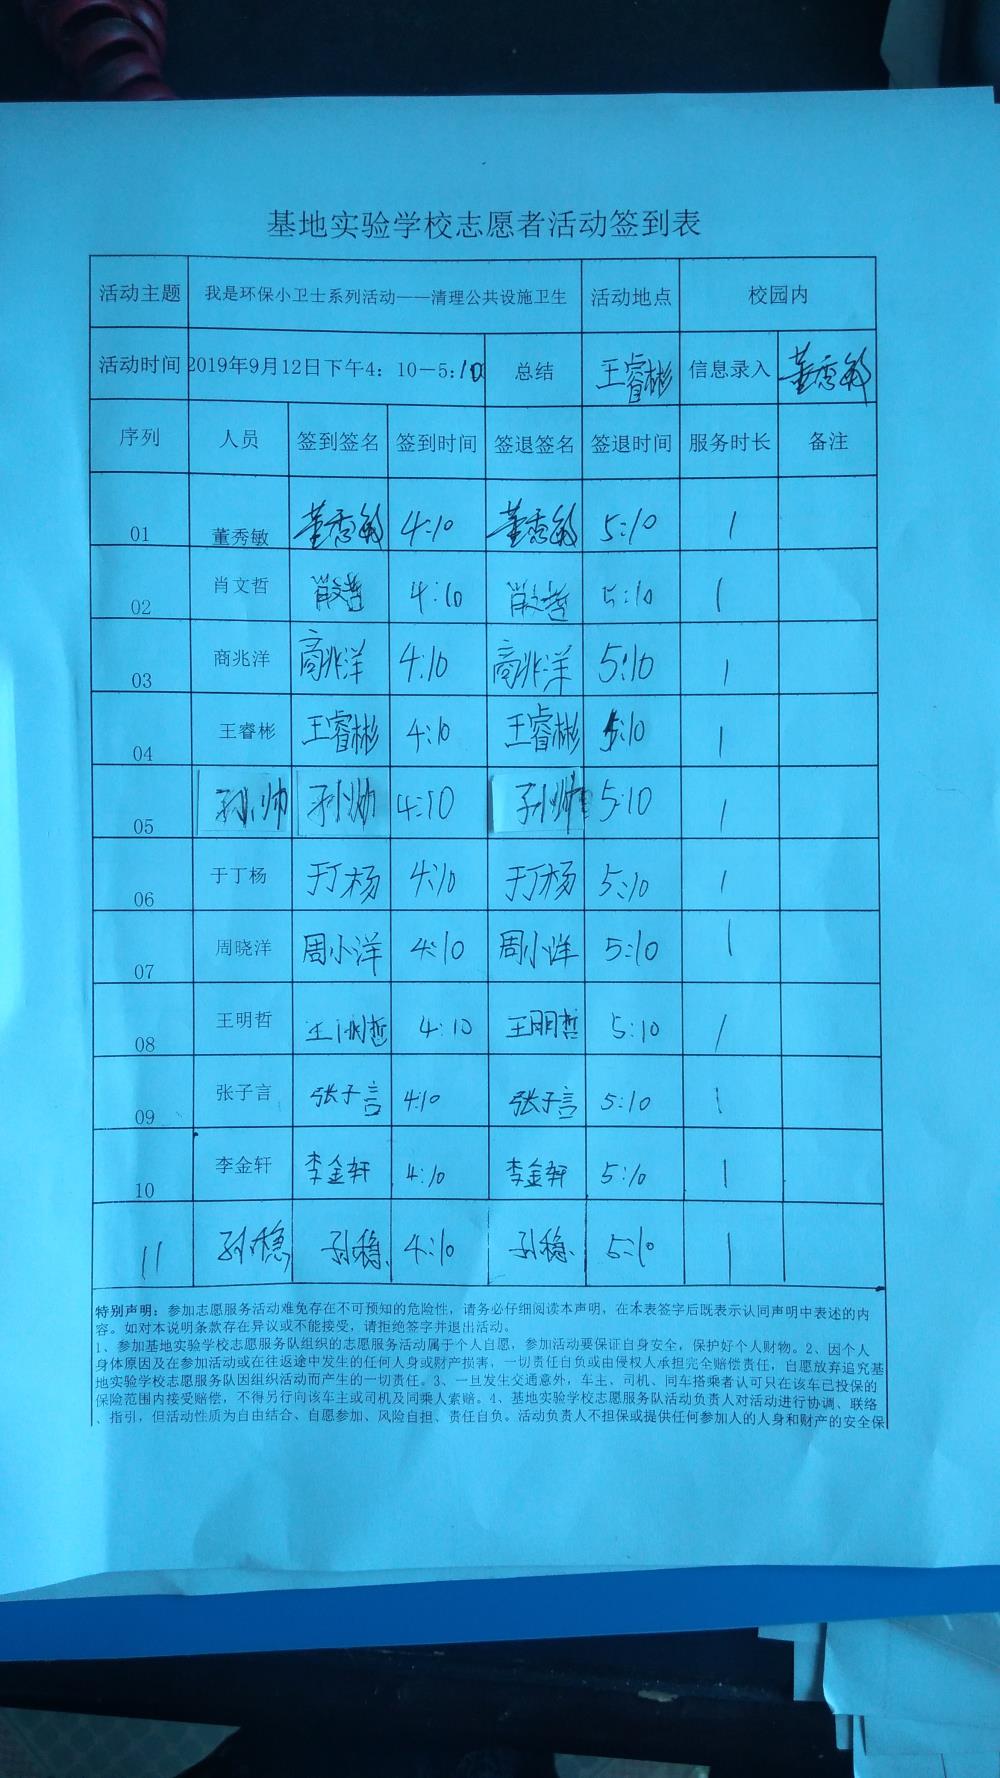 基地实验学校志愿者活动签到表
活动主题 我是环保小卫士系列活动——清理公共设施卫生 活动地点 校园内
活动时间 2019年9月12日下午4：10－5：10 总结 王睿彬 信息录入 董秀敏
序列 人员 签到签名 签到时间 签退签名 签退时间 服务时长 备注
01 董秀敏 董秀敏 4:10 董秀敏 5:10 1
02 肖文哲 肖文哲 4:10 肖文哲 5:10 1
03 商兆洋 商兆洋 4:10 商兆洋 5:10 1
04 王睿彬 王睿彬 4:10 王睿彬 5:10 1
05 孙帅 孙帅 4:10 孙帅 5:10 1
06 于丁杨 于丁杨 4:10 于丁杨 5:10 1
07 周晓洋 周小洋 4:10 周小洋 5:10 1
08 王明哲 王明哲 4:10 王明哲 5:10 1
09 张子言 张子言 4:10 张子言 5:10 1
10 李金轩 李金轩 4:10 李金轩 5:10 1
11 孙稳 孙稳 4:10 孙稳 5:10 1
特别声明：参加志愿服务活动难免存在不可预知的危险性，请务必仔细阅读本声明，在本表签字后既表示认同声明中表述的内
容。如对本说明条款存在异议或不能接受，请拒绝签字并退出活动。
1、参加基地实验学校志愿服务队组织的志愿服务活动属于个人自愿，参加活动要保证自身安全，保护好个人财物。2、因个人
身体原因及在参加活动或在往返途中发生的任何人身或财产损害，一切责任自负或由侵权人承担完全赔偿责任，自愿放弃追究基
地实验学校志愿服务队因组织活动而产生的一切责任。3、一旦发生交通意外，车主、司机、同车搭乘者认可只在该车已投保的
保险范围内接受赔偿，不得另行向该车主或司机及同乘人索赔。4、基地实验学校志愿服务队活动负责人对活动进行协调、联络
、指引，但活动性质为自由结合、自愿参加、风险自担、责任自负。活动负责人不担保或提供任何参加人的人身和财产的安全保